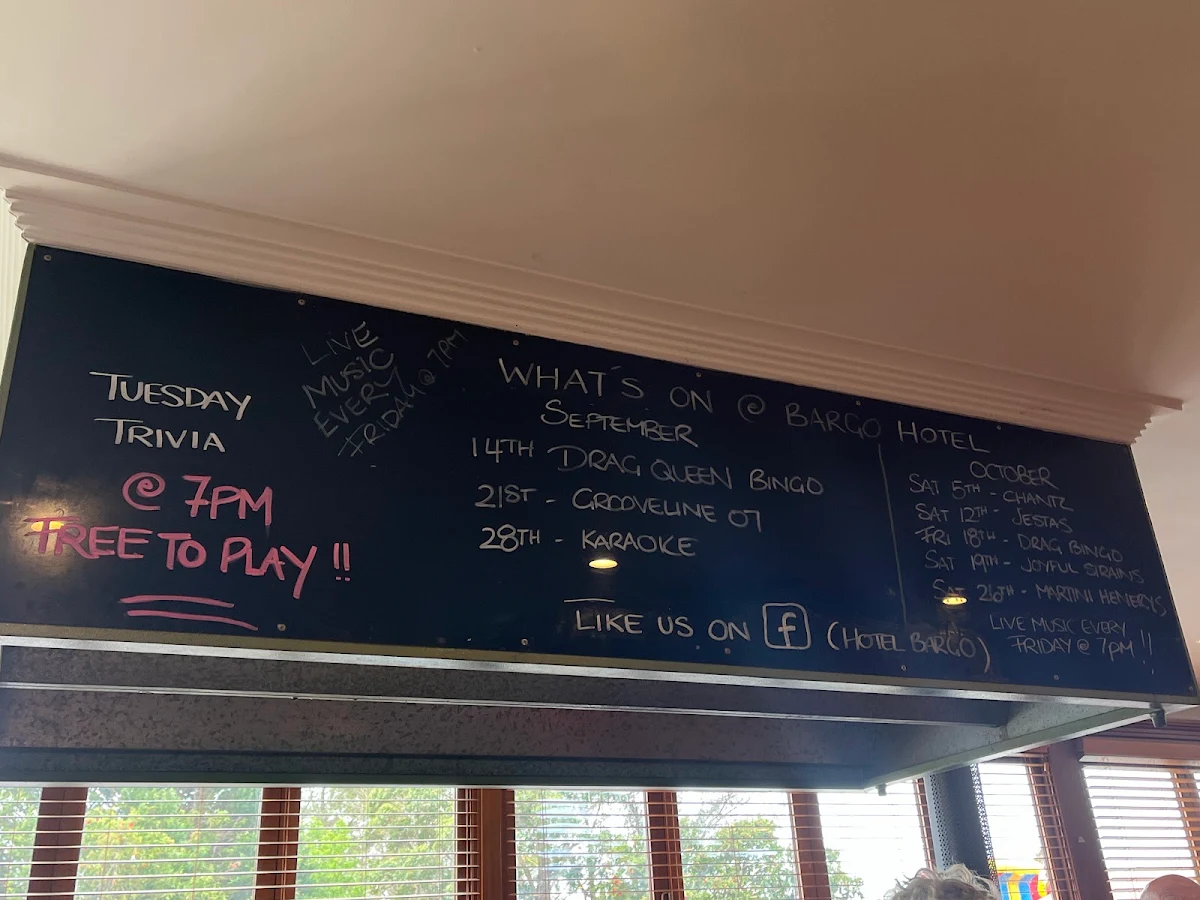 TUESDAY
TRIVIA
@ 7PM
FREE TO PLAY !!
LIVE
MUSIC
EVERY
FRIDAY @ 7PM
WHAT'S ON @ BARGO HOTEL
SEPTEMBER
14TH DRAG QUEEN BINGO
21ST - GROOVELINE 07
28TH - KARAOKE
LIKE US ON f (HOTEL BARGO)
OCTOBER
SAT 5TH - CHANTZ
SAT 12TH - JESTAS
FRI 18TH - DRAG BINGO
SAT 19TH - JOYFUL STRAINS
SAT 26TH - MARTINI HENERYS
LIVE MUSIC EVERY
FRIDAY @ 7PM !!